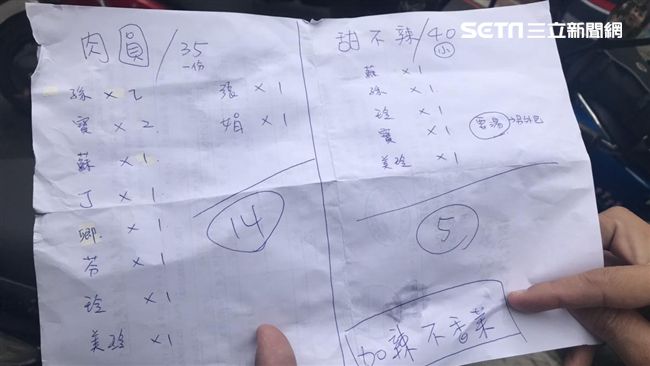 SETN三立新聞網
肉圓/35
一份
孫 x 2
寶 x 2
蘇 x 1
丁 x 1
卿 x 1
芬 x 1
玲 x 1
美玲 x 1
張 x 1
娟 x 1
14
甜不辣/40
小
蘇 x 1
孫 x 1
玲 x 1
寶 x 1
美玲 x 1
要湯
5
加辣不香菜